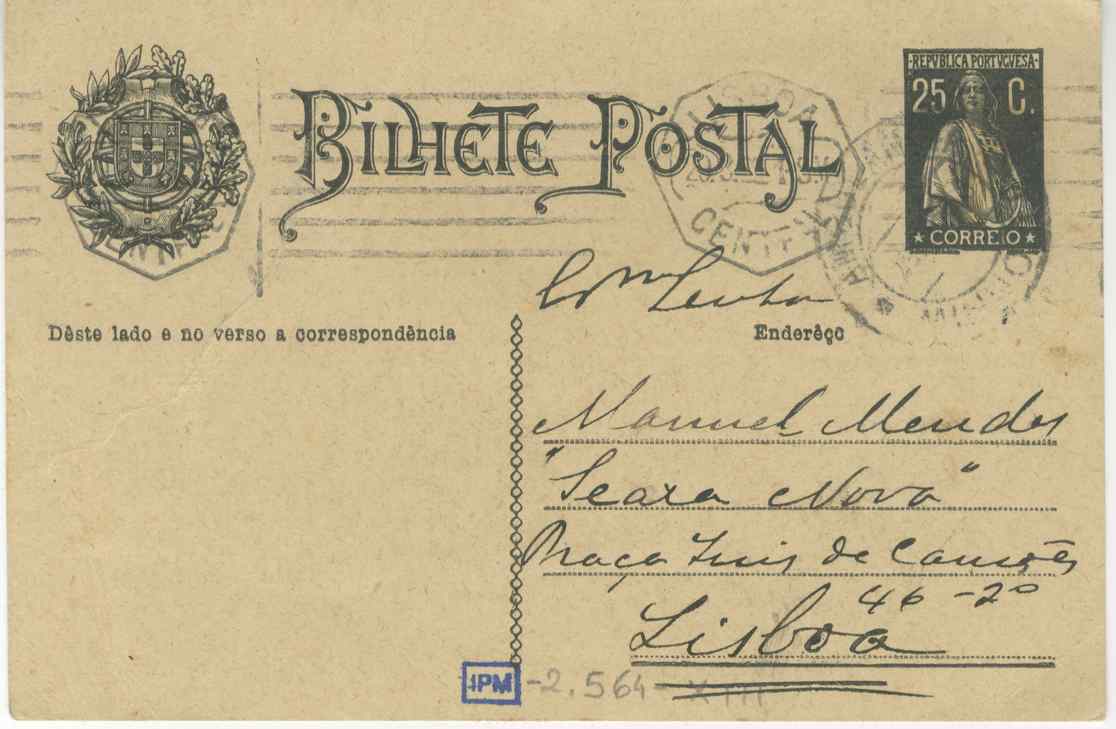 BILHETE POSTAL
REPVBLICA PORTVGVESA
25 C.
CORREIO
LISBOA
CENTRAL
Dêste lado e no verso a correspondência
Endereço
Manuel Mendes
"Seara Nova"
Praça Luis de Camões
46-2º
Lisboa
IPM -2.564-XIII